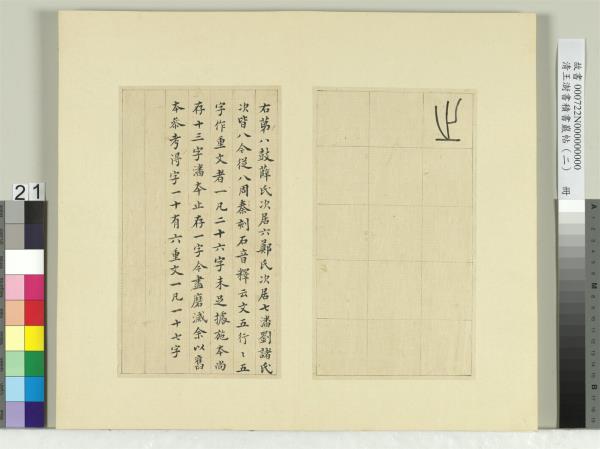 止
右第八鼓薛氏次居六鄭氏次居七潘劉諸氏
次皆八今從八周秦刻石音釋云文五行〻五
字作重文者一凡二十六字未足據施本尚
存十三字潘本止存一字今盡磨滅余以舊
本叅考得字一十有六重文一凡一十七字
故書 000722N000000000
清王澍書積書巖帖（二） 冊
21
A
B